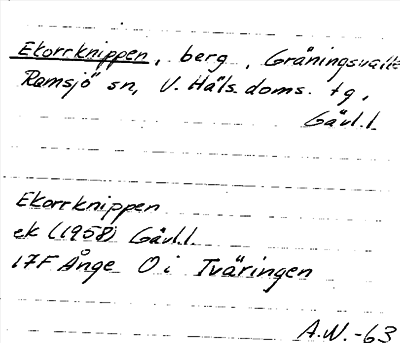 Ekorrknippen, berg, Gräningsvalle
Ramsjö sn, V. Häls. doms. tg,
Gävl.l.
Ekorrknippen
ek (1958) Gävl.l.
17F Ånge O i Tväringen
A.W.-63